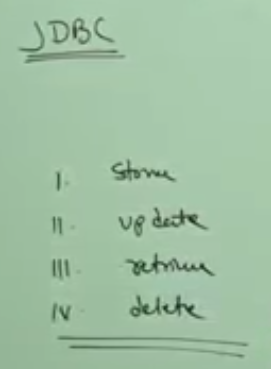 JDBC
I. Store
II. update
III. retrieve
IV. delete